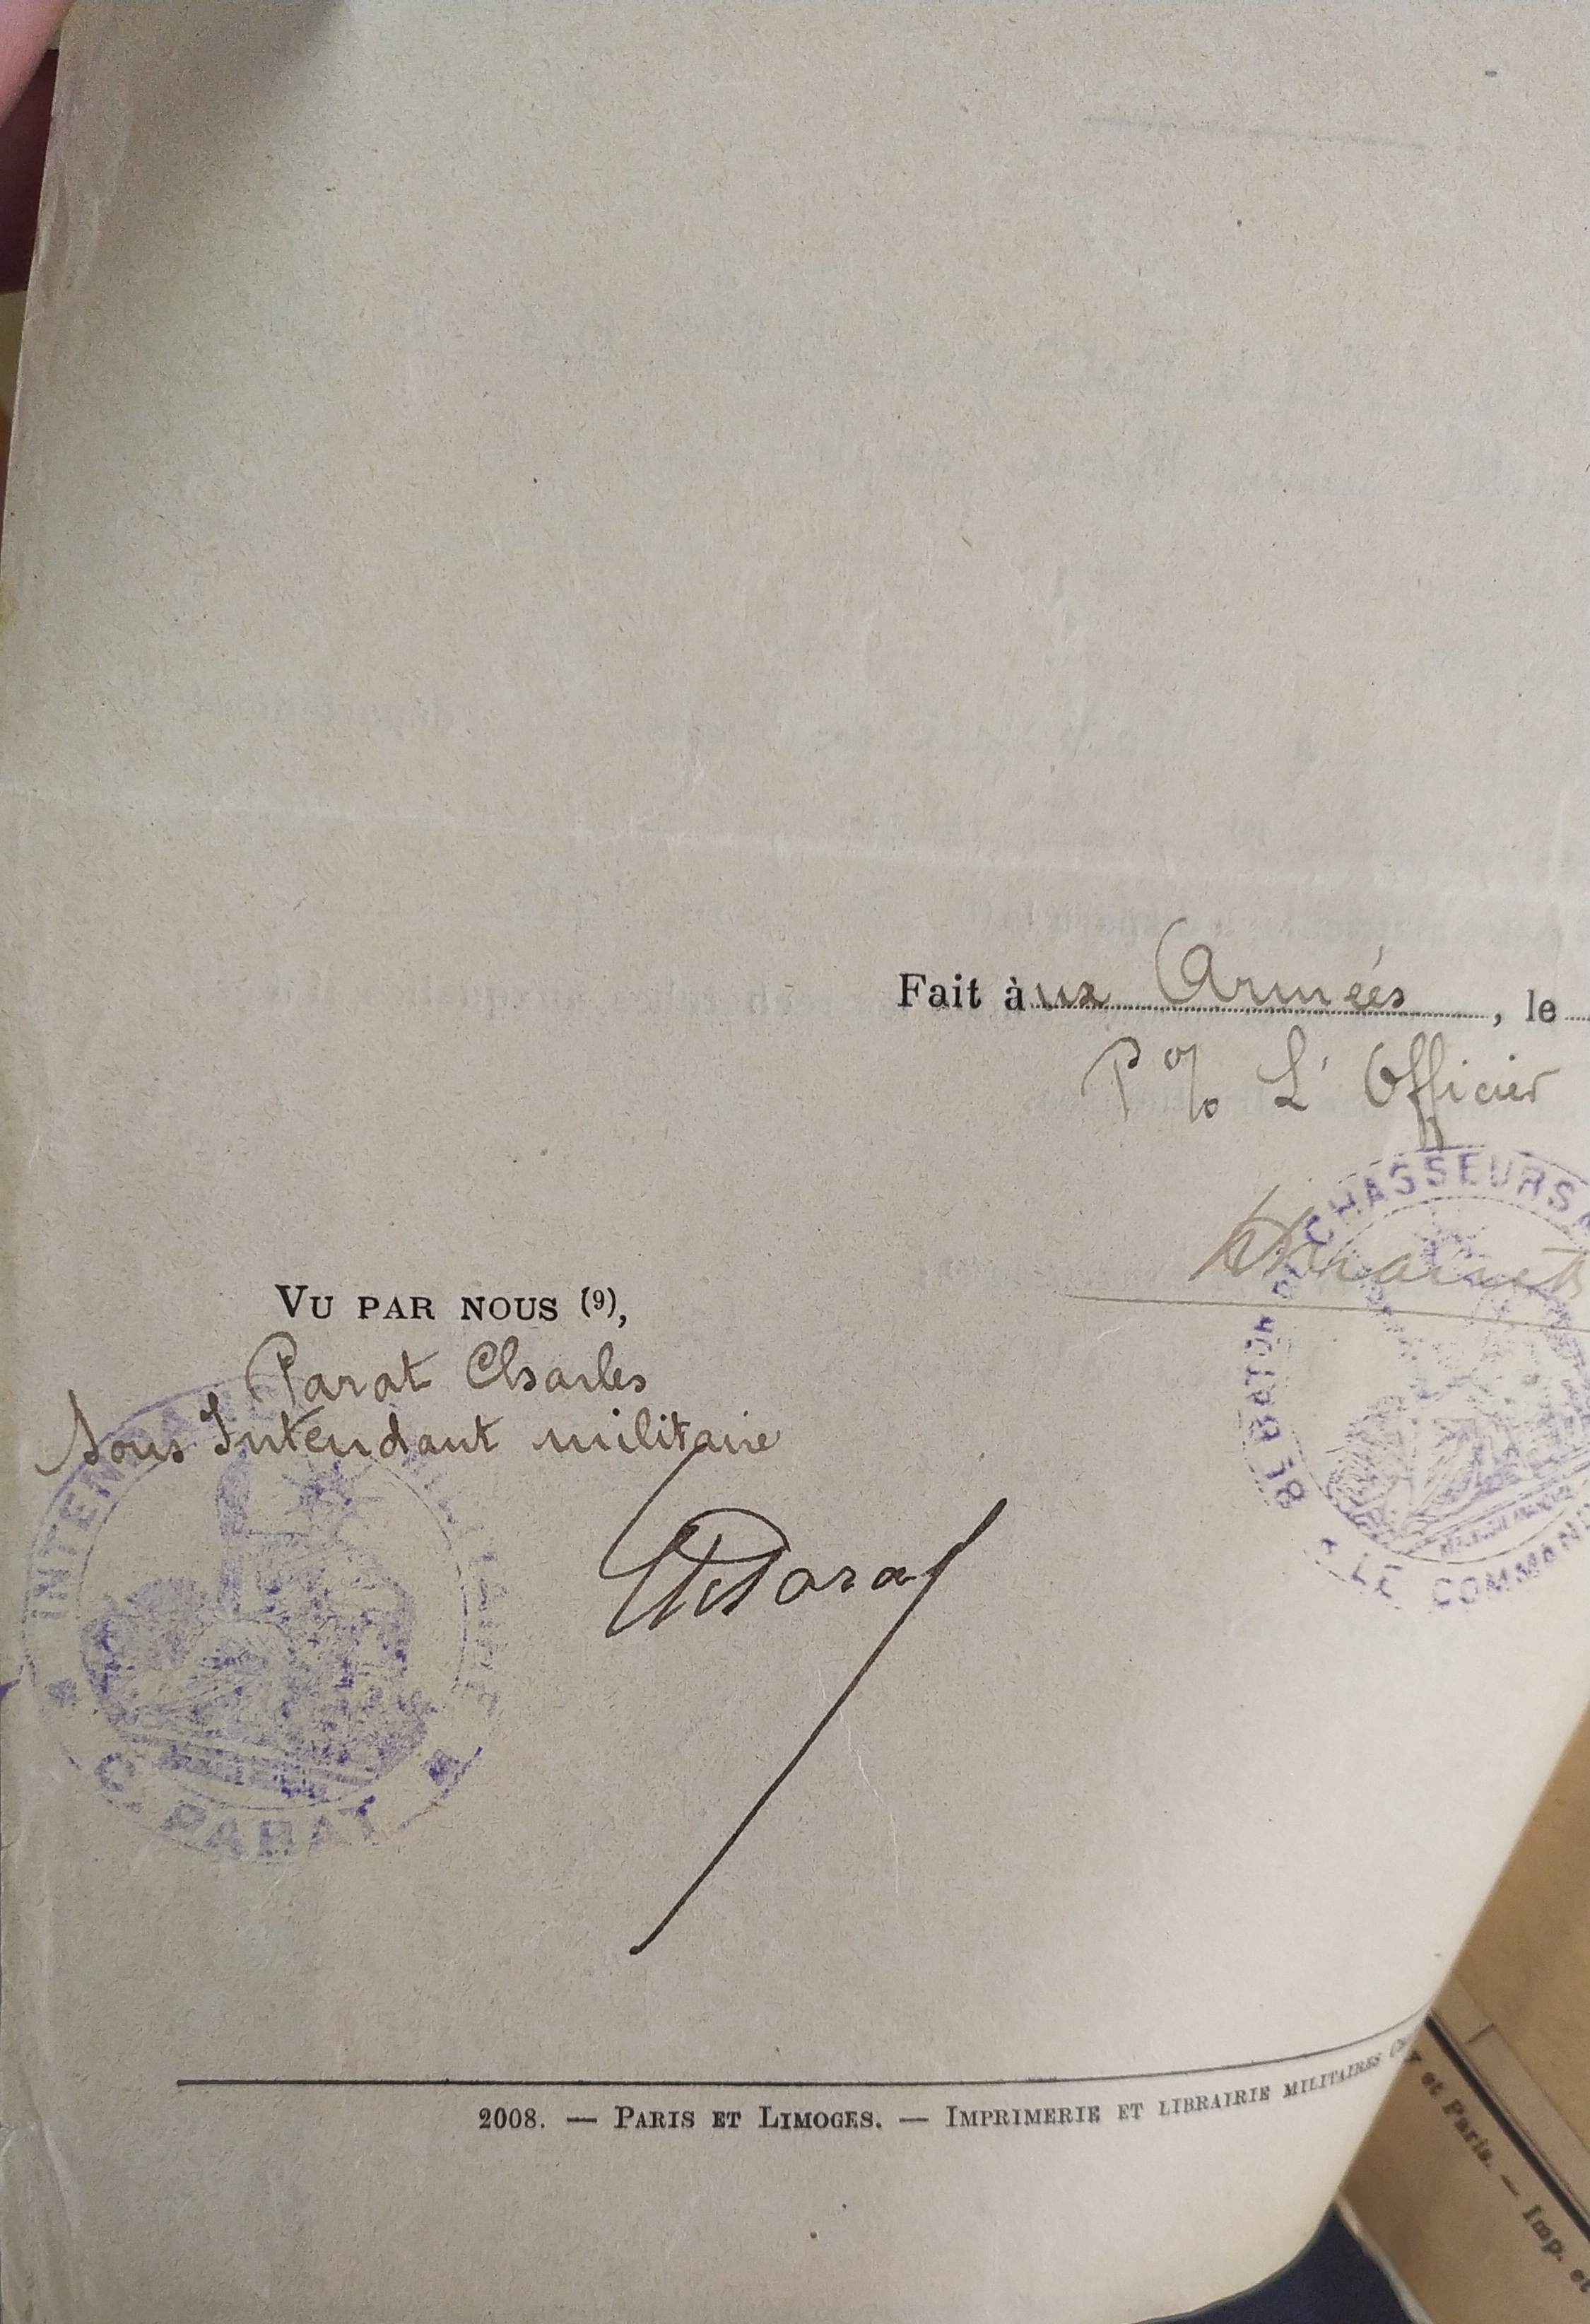 Fait aux Armées, le
Po/o L'Officier
CHASSEURS
18 BATON
LE COMMAN
VU PAR NOUS (9),
Parat Charles
Sous Intendant militaire
INTEN
C. PARAT
Parat
2008. — PARIS ET LIMOGES. — IMPRIMERIE ET LIBRAIRIE MILITAIRES
et Paris. — Imp. et